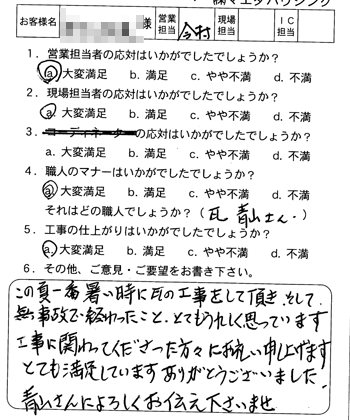 ㈱マエダハウジング
お客様名 様 営業担当 今村 現場担当 IC担当
1．営業担当者の応対はいかがでしたでしょうか？
a. 大変満足 b. 満足 c. やや不満 d. 不満
2．現場担当者の応対はいかがでしたでしょうか？
a. 大変満足 b. 満足 c. やや不満 d. 不満
3．コーディネーターの応対はいかがでしたでしょうか？
a. 大変満足 b. 満足 c. やや不満 d. 不満
4．職人のマナーはいかがでしたでしょうか？
a. 大変満足 b. 満足 c. やや不満 d. 不満
それはどの職人でしょうか？（瓦 青山さん．）
5．工事の仕上がりはいかがでしたでしょうか？
a. 大変満足 b. 満足 c. やや不満 d. 不満
6．その他、ご意見・ご要望をお書き下さい。
この夏一番暑い時に瓦の工事をして頂き、そして、
無事故で終わったこと、とてもうれしく思っています
工事に関わってくださった方々にお礼申し上げます
とても満足しています ありがとうございました。
青山さんによろしくお伝え下さいませ